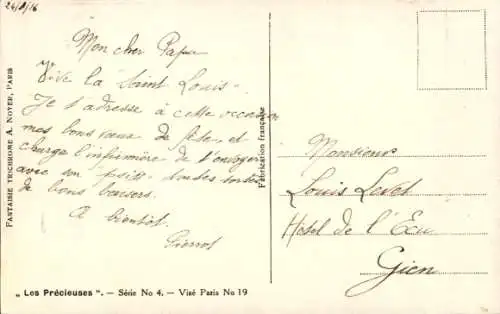 24/8/16
Mon cher Papa
Vive la "Saint Louis".
Je t'adresse à cette occasion
mes bons vœux de fête, et
charge l'infirmière de t'envoyer
avec son petit toutes sortes
de bons baisers.
A bientôt.
Pierrot
FANTAISIE TRICHROME A. NOYER, PARIS
Fabrication française
Monsieur
Louis
Hotel de l'Ecu
Gien
„ Les Précieuses ". — Série No 4. — Visé Paris No 19